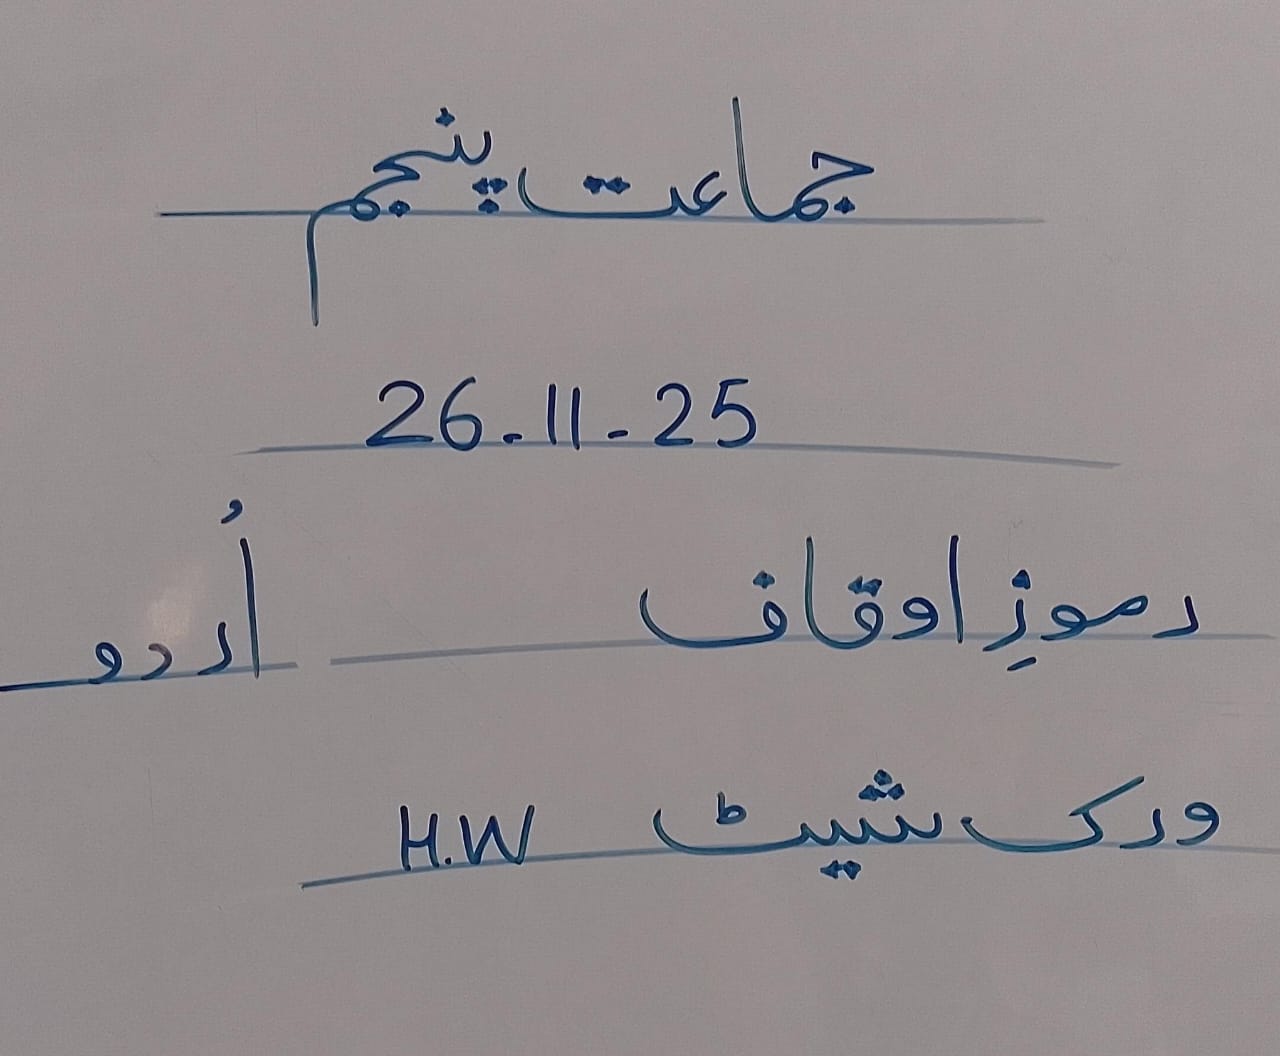 جماعت پنجم
26-11-25
رموزِ اوقاف اُردو
ورک شیٹ H.W